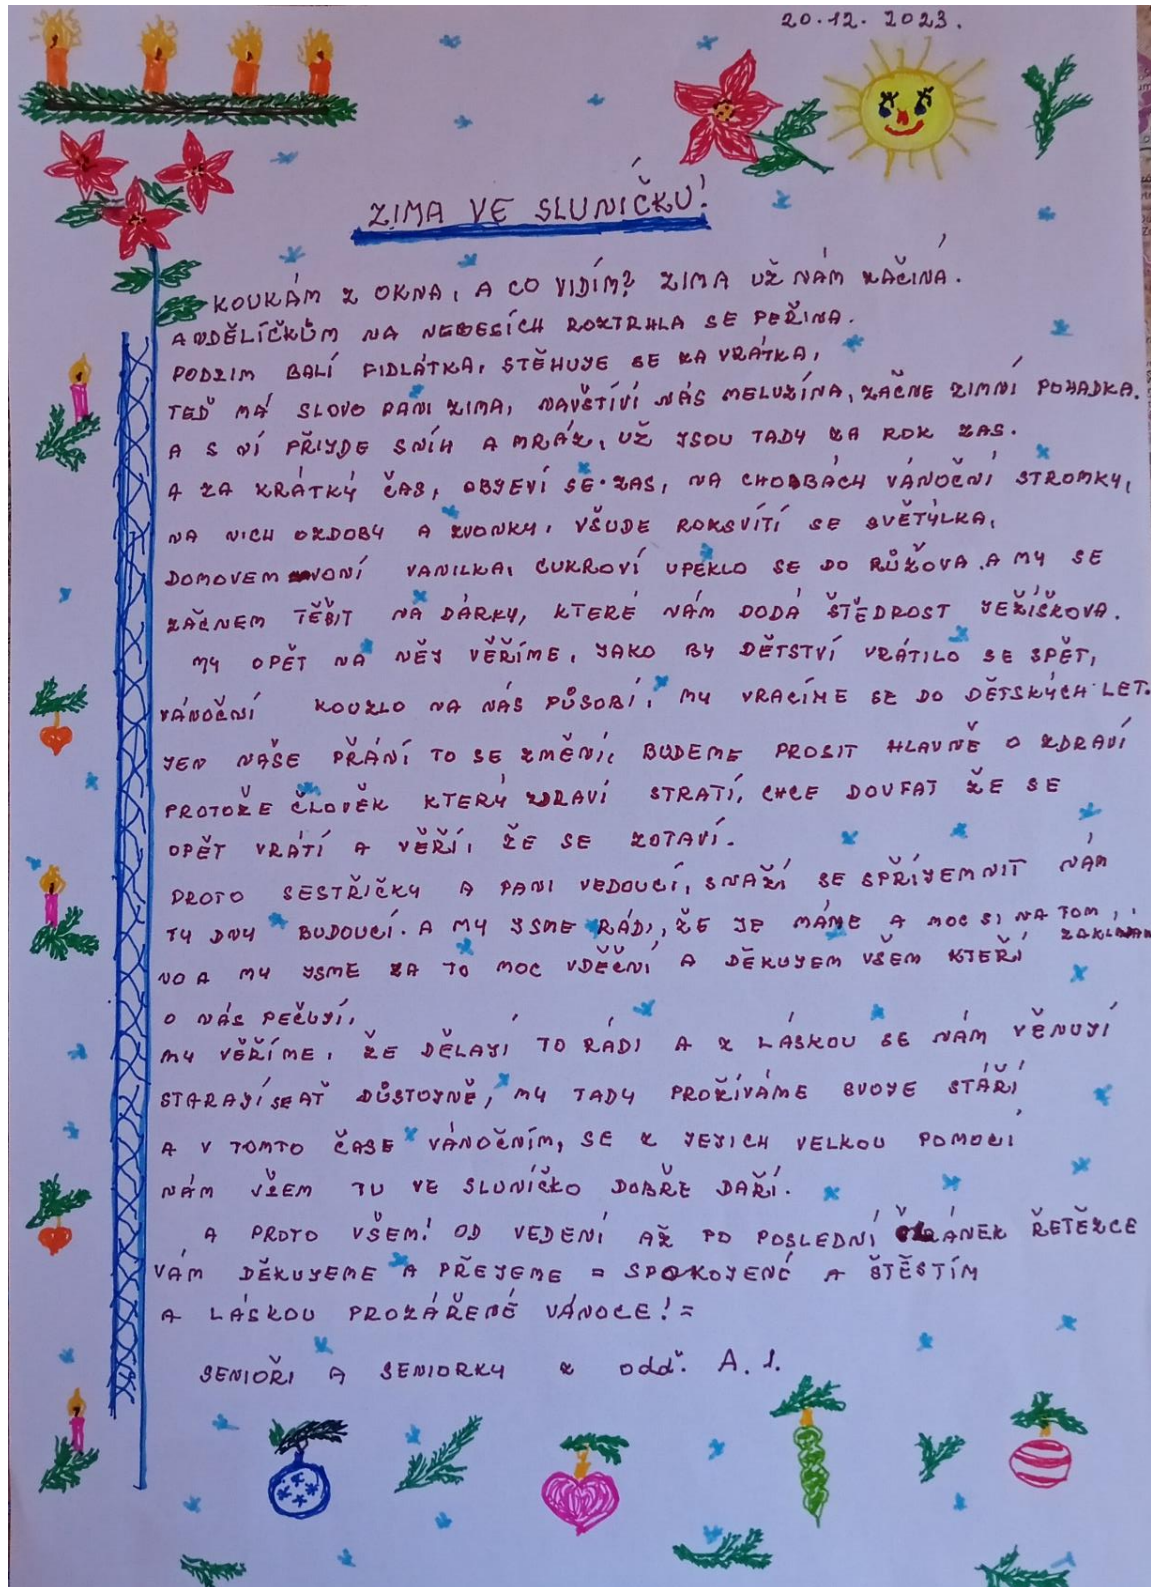 20.12. 2023.
ZIMA VE SLUNÍČKU!
KOUKÁM Z OKNA, A CO VIDÍM? ZIMA UŽ NÁM ZAČÍNÁ.
ANDĚLÍČKŮM NA NEBESÍCH ROZTRHLA SE PEŘINA.
PODZIM BALÍ FIDLÁTKA, STĚHUJE SE ZA VRÁTKA,
TEĎ MÁ SLOVO PANI ZIMA, NAVŠTÍVÍ NÁS MELUZÍNA, ZAČNE ZIMNÍ POHADKA.
A S NÍ PŘIJDE SNÍH A MRÁZ, UŽ JSOU TADY ZA ROK ZAS.
A ZA KRÁTKÝ ČAS, OBJEVÍ SE ZAS, NA CHODBÁCH VÁNOČNÍ STROMKY,
NA NICH OZDOBY A ZVONKY, VŠUDE ROZSVÍTÍ SE SVĚTÝLKA,
DOMOVEM VONÍ VANILKA, CUKROVÍ UPEKLO SE DO RŮŽOVA. A MY SE
ZAČNEM TĚŠIT NA DÁRKY, KTERÉ NÁM DODÁ ŠTĚDROST JEŽÍŠKOVA.
MY OPĚT NA NĚJ VĚŘÍME, JAKO BY DĚTSTVÍ VRÁTILO SE SPĚT,
VÁNOČNÍ KOUZLO NA NÁS PŮSOBÍ, MY VRACÍME SE DO DĚTSKÝCH LET.
JEN NAŠE PŘÁNÍ TO SE ZMĚNÍ, BUDEME PROSIT HLAVNĚ O ZDRAVÍ
PROTOŽE ČLOVĚK KTERÝ ZDRAVÍ STRATÍ, CHCE DOUFAT ŽE SE
OPĚT VRÁTÍ A VĚŘÍ, ŽE SE ZOTAVÍ.
PROTO SESTŘIČKY A PANI VEDOUCÍ, SNAŽÍ SE SPŘÍJEMNIT NÁM
TY DNY BUDOUCÍ. A MY JSME RÁDI, ŽE JE MÁME A MOC SI NA TOM ZAKLÁDÁM
NO A MY JSME ZA TO MOC VDĚČNÍ A DĚKUJEM VŠEM KTEŘÍ
O NÁS PEČUJÍ,
MY VĚŘÍME, ŽE DĚLAJÍ TO RÁDI A Z LÁSKOU SE NÁM VĚNUJÍ
STARAJÍ SE AŤ DŮSTOJNĚ, MY TADY PROŽÍVÁME SVOJE STÁŘÍ
A V TOMTO ČASE VÁNOČNÍM, SE Z JEJICH VELKOU POMOCÍ
NÁM VŠEM TU VE SLUNÍČKO DOBŘE DAŘÍ.
A PROTO VŠEM! OD VEDENÍ AŽ PO POSLEDNÍ ČLÁNEK ŘETĚZCE
VÁM DĚKUJEME A PŘEJEME = SPOKOJENÉ A ŠTĚSTÍM
A LÁSKOU PROZÁŘENÉ VÁNOCE! =
SENIOŘI A SENIORKY Z odd. A.1.